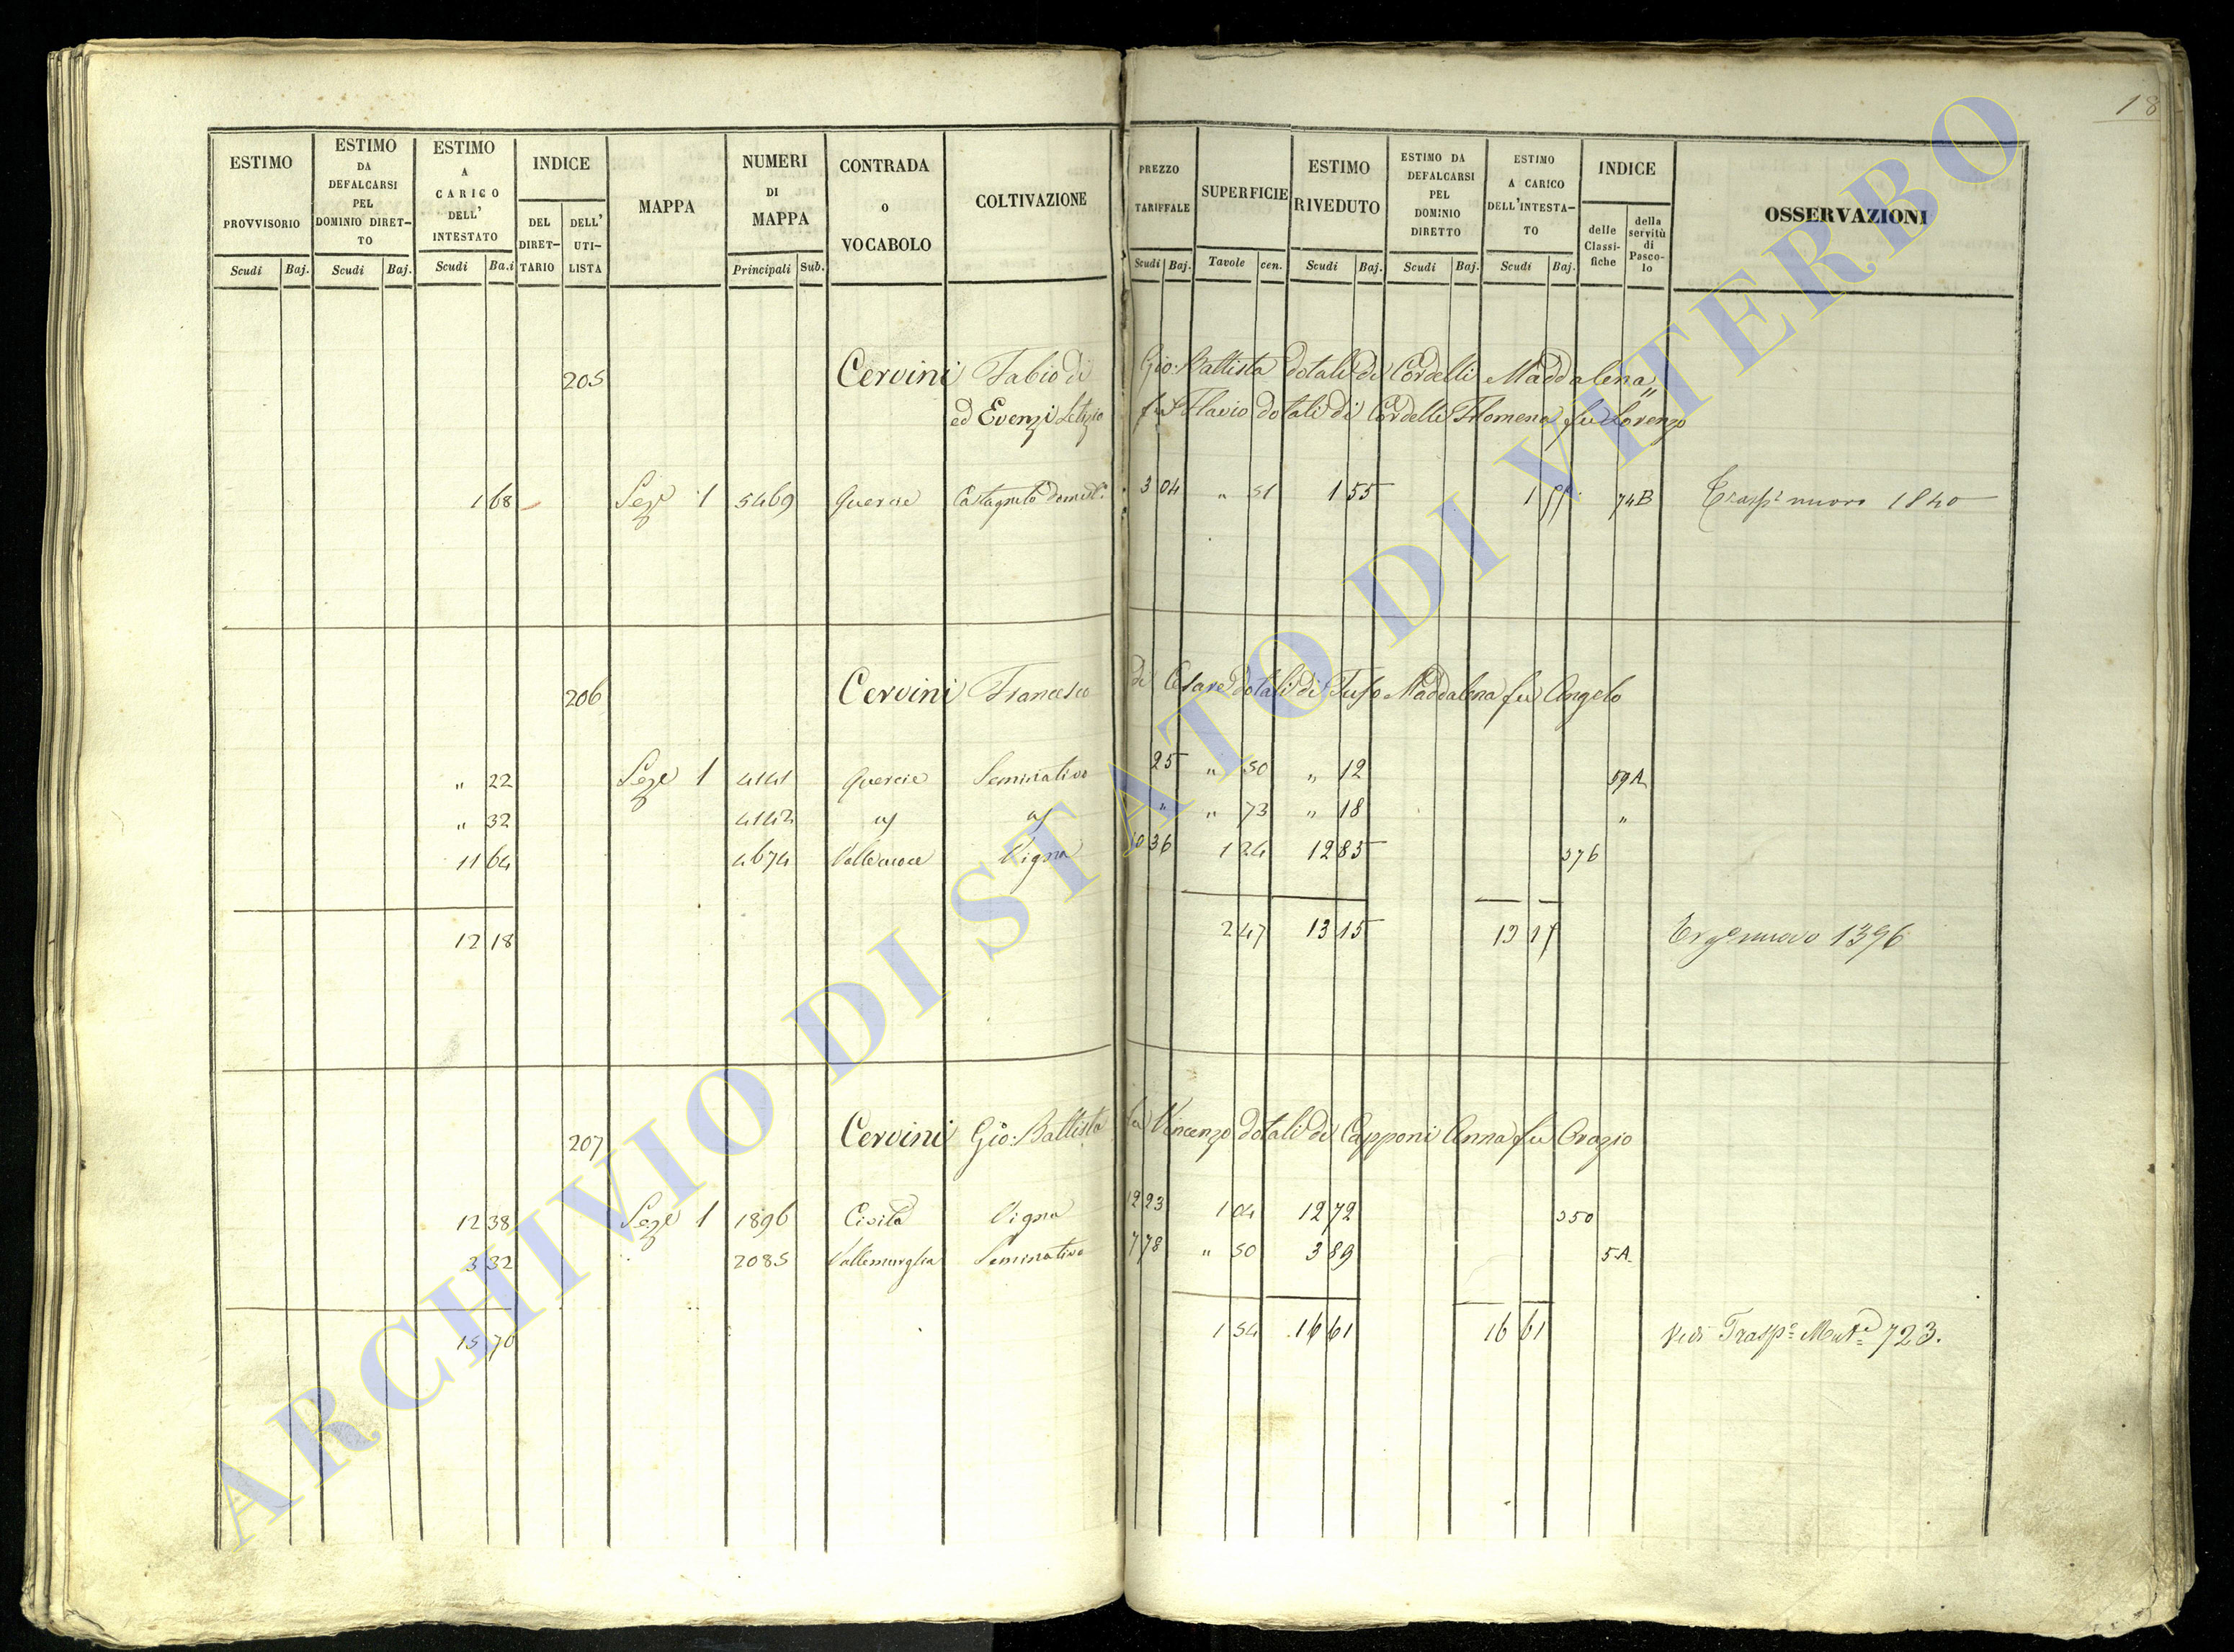 18
ESTIMO PROVVISORIO | ESTIMO DA DEFALCARSI PEL DOMINIO DIRETTO | ESTIMO A CARICO DELL' INTESTATO | INDICE | MAPPA | NUMERI DI MAPPA | CONTRADA o VOCABOLO | COLTIVAZIONE | PREZZO TARIFFALE | SUPERFICIE | ESTIMO RIVEDUTO | ESTIMO DA DEFALCARSI PEL DOMINIO DIRETTO | ESTIMO A CARICO DELL'INTESTATO | INDICE | OSSERVAZIONI
DEL DIRETTARIO | DELL' UTILISTA | delle Classifiche | della servitù di Pascolo
Scudi | Baj. | Scudi | Baj. | Scudi | Ba.i | Principali | Sub. | Scudi | Baj. | Tavole | cen. | Scudi | Baj. | Scudi | Baj. | Scudi | Baj.
205 Cervini Fabio di Gio: Battista dotali di Cordelli Maddalena
ed Evenzi Letizia fu Flavio dotali di Cordelli Filomena fu Lorenzo
1 68 Seze 1 5469 Quercie Castagneto domest. 3 04 " 51 1 55 1 55 74B Trasp. nuovo 1840
206 Cervini Francesco di Cesare dotali di Tufo Maddalena fu Angelo
" 22 Seze 1 4141 Quercie Seminativo 25 " 50 " 12 59A
" 32 4142 " " 73 " 18 "
11 64 4674 Vigna 10 36 1 24 12 83 376
12 18 2 47 13 15 13 15 nuovo 1396
207 Cervini Gio: Battista fu Vincenzo dotali di Capponi Anna fu Orazio
12 38 Seze 1 1896 Civita Vigna 12 23 1 04 12 72 350
3 32 2085 Vallemurglia Seminativo 7 78 " 50 3 89 5A
15 70 1 54 16 61 16 61 Vedi Trasp. Mut. 723.
ARCHIVIO DI STATO DI VITERBO